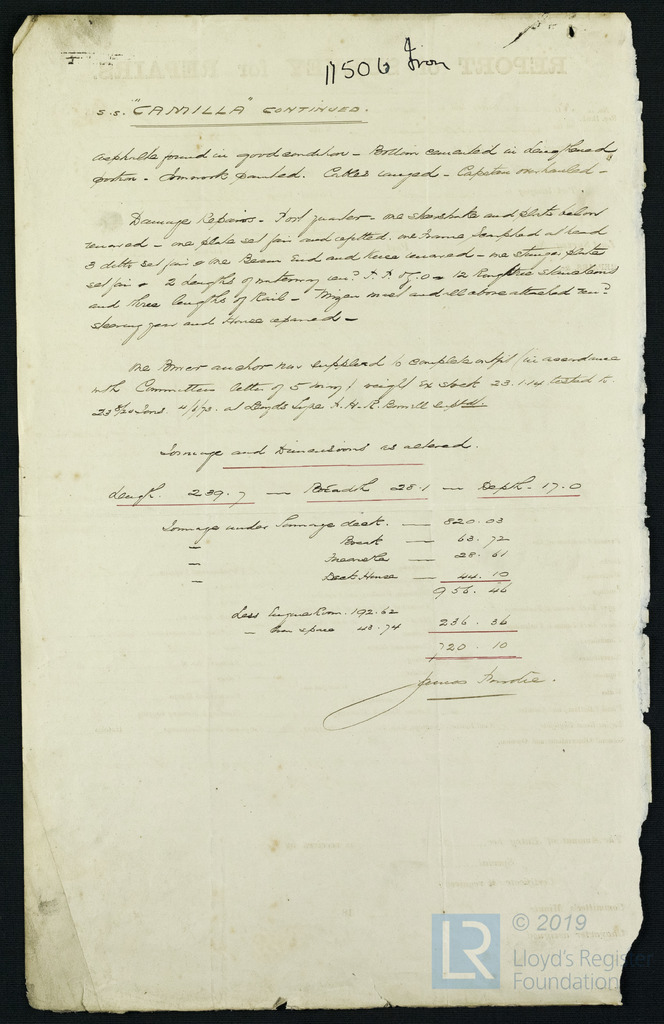 11506 Iron
S.S. "CAMILLA" CONTINUED.
asphalte found in good condition - Bottom cemented in lengthened
portion - Ironwork painted. Cables ranged - Capstan overhauled -
Damage Repairs - Port quarter - one sheerstrake and plate below
renewed - one plate set fair and refitted. one frame scarphed at head
3 ditto set fair & one Beam End and knee renewed - one stringer plate
set fair & 2 lengths of waterway ren? 12 Roughtree stanchions
and three lengths of Rail - Mizen mast and all above attached ren?
steering gear and House repaired -
One Bower anchor now supplied to complete (in accordance
with Committees letter of 5 weight Ex Stock 23.1.14 tested to
23 Tons 4/6/73. at Lloyds Supt
Tonnage and Dimensions as altered.
Length. 239.7 - Breadth 28.1 - Depth - 17.0
Tonnage under Tonnage deck. - 820.03
" Break - 63.72
" - 28.61
" Deck House - 44.10
956.46
Less Engine Room. 192.62
" space 43.74 236.36
720.10
James
REPORT OF SURVEY for REPAIRS.
LR © 2019
Lloyd's Register
Foundation